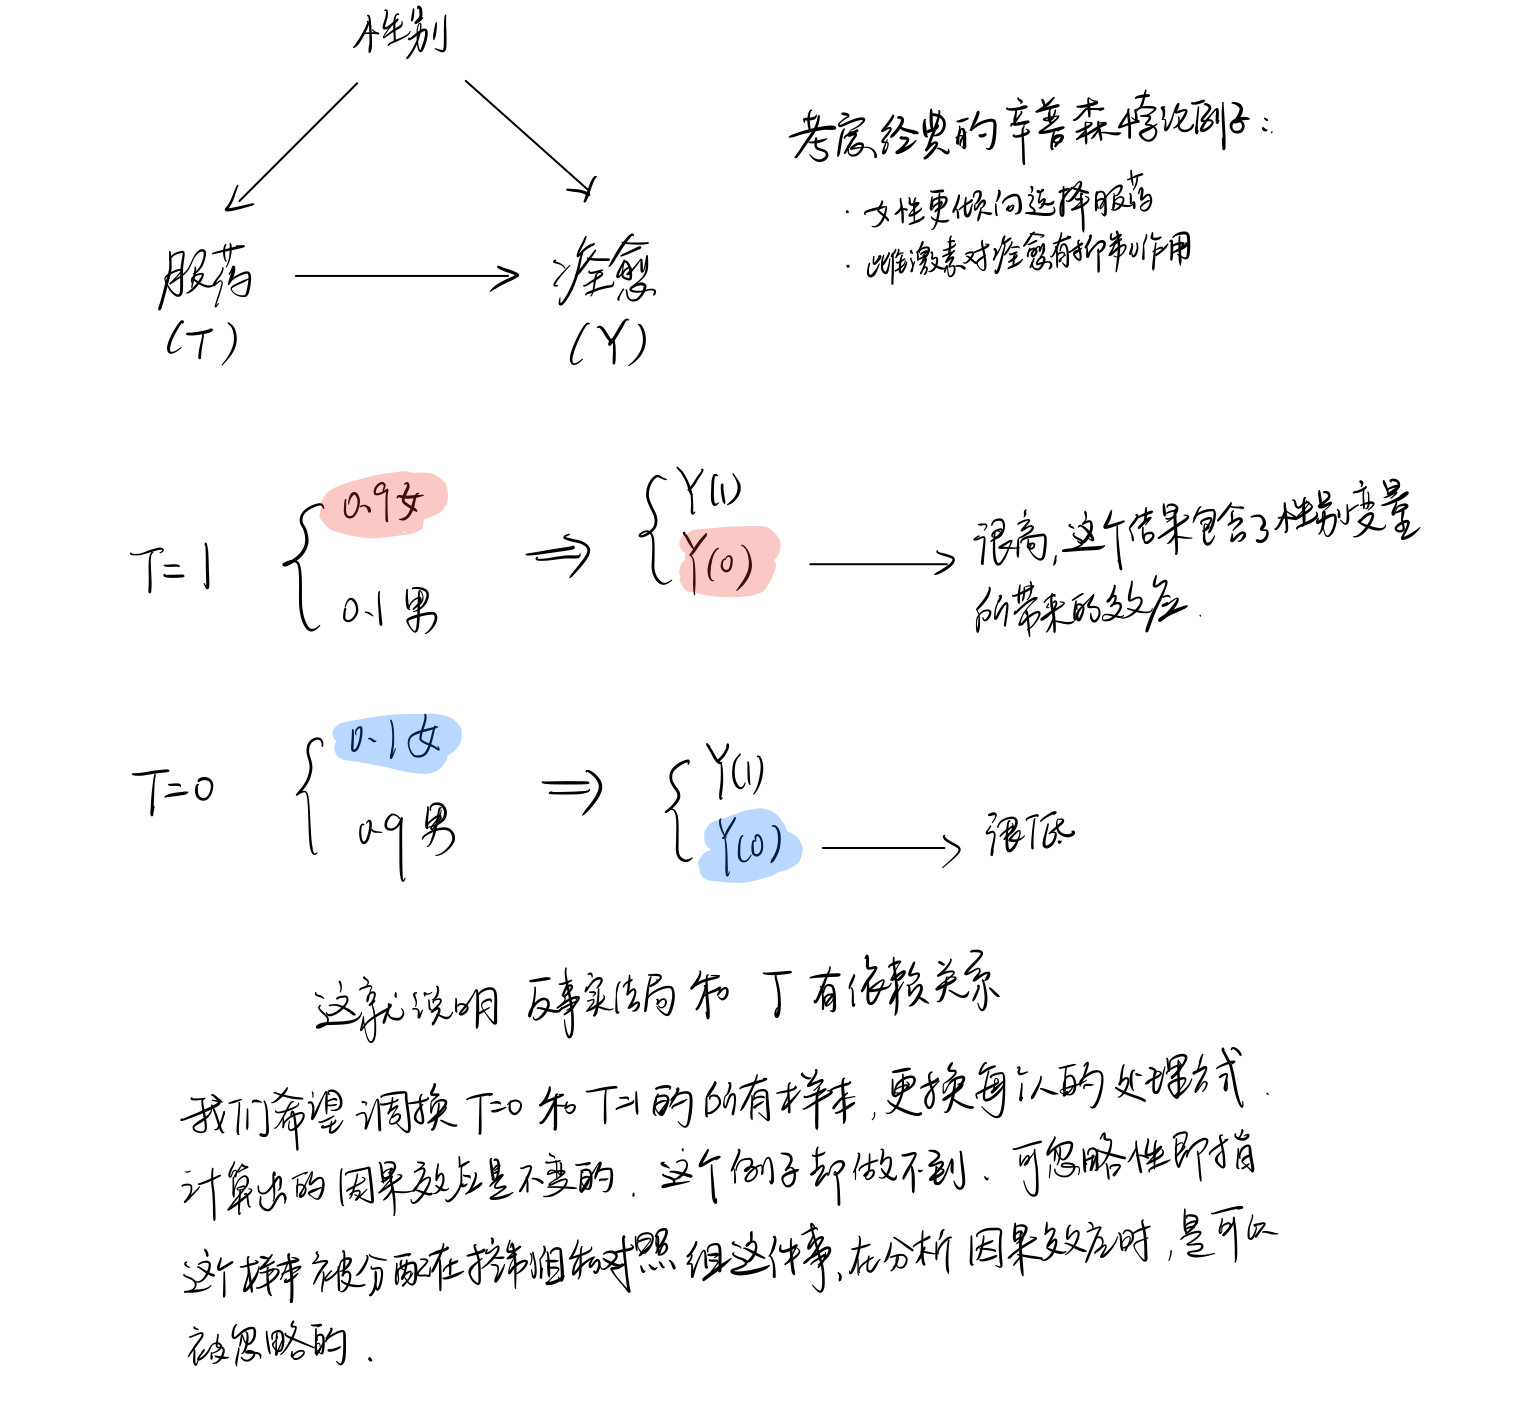 性别
考虑经典的辛普森悖论例子：
· 女性更倾向选择服药
· 雌激素对痊愈有抑制作用
服药
痊愈
(T)
(Y)
T=1
0.9女
0.1男
Y(1)
Y(0)
很高，这个结果包含了性别变量
所带来的效应.
T=0
0.1女
0.9男
Y(1)
Y(0)
很低
这就说明 反事实结局和 T 有依赖关系
我们希望调换 T=0 和 T=1 的所有样本，更换每个人的处理方式.
计算出的因果效应是不变的. 这个例子却做不到. 可忽略性即指
这个样本被分配在控制组和对照组这件事，在分析因果效应时，是可以
被忽略的.